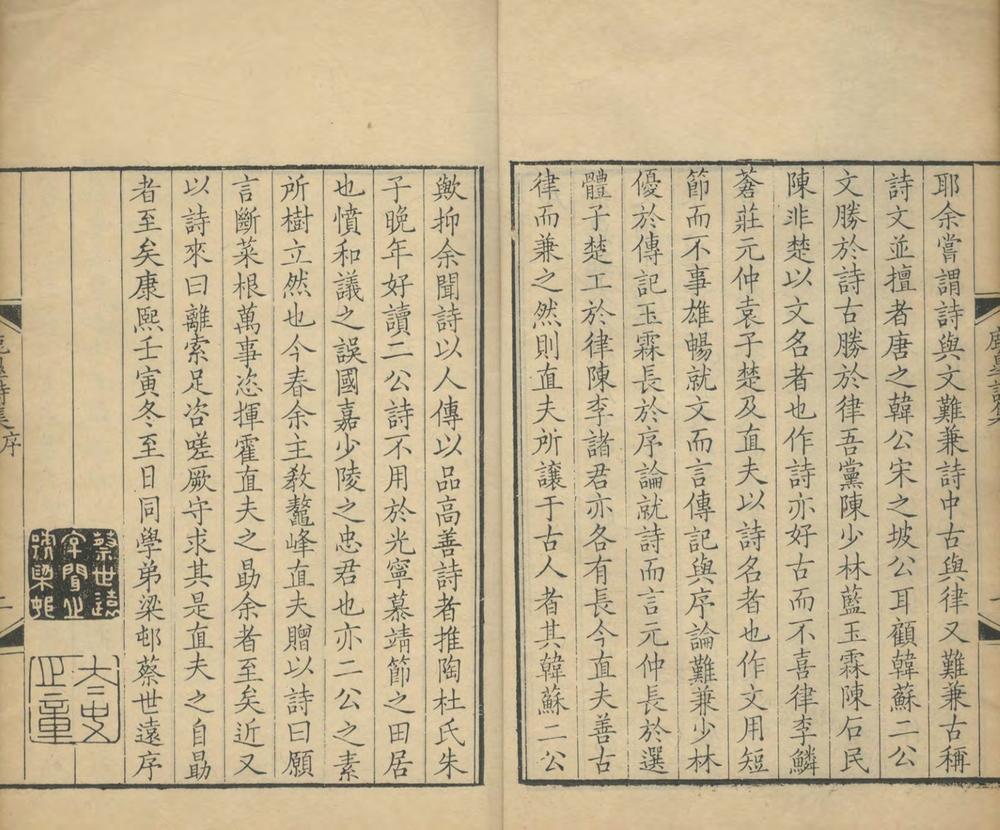 耶余嘗謂詩與文難兼詩中古與律又難兼古稱
詩文並擅者唐之韓公宋之坡公耳顧韓蘇二公
文勝於詩古勝於律吾黨陳少林藍玉霖陳石民
陳非楚以文名者也作詩亦好古而不喜律李鱗
蒼莊元仲袁子楚及直夫以詩名者也作文用短
節而不事雄暢就文而言傳記與序論難兼少林
優於傳記玉霖長於序論就詩而言元仲長於選
體子楚工於律陳李諸君亦各有長今直夫善古
律而兼之然則直夫所讓于古人者其韓蘇二公
歟抑余聞詩以人傳以品高善詩者推陶杜氏朱
子晚年好讀二公詩不用於光寧慕靖節之田居
也憤和議之誤國嘉少陵之忠君也亦二公之素
所樹立然也今春余主敎鼇峰直夫贈以詩曰願
言斷菜根萬事恣揮霍直夫之勗余者至矣近又
以詩來曰離索足咨嗟厥守求其是直夫之自勗
者至矣康熙壬寅冬至日同學弟梁邨蔡世遠序
詩集序
二
蔡世遠
字聞之
號梁邨